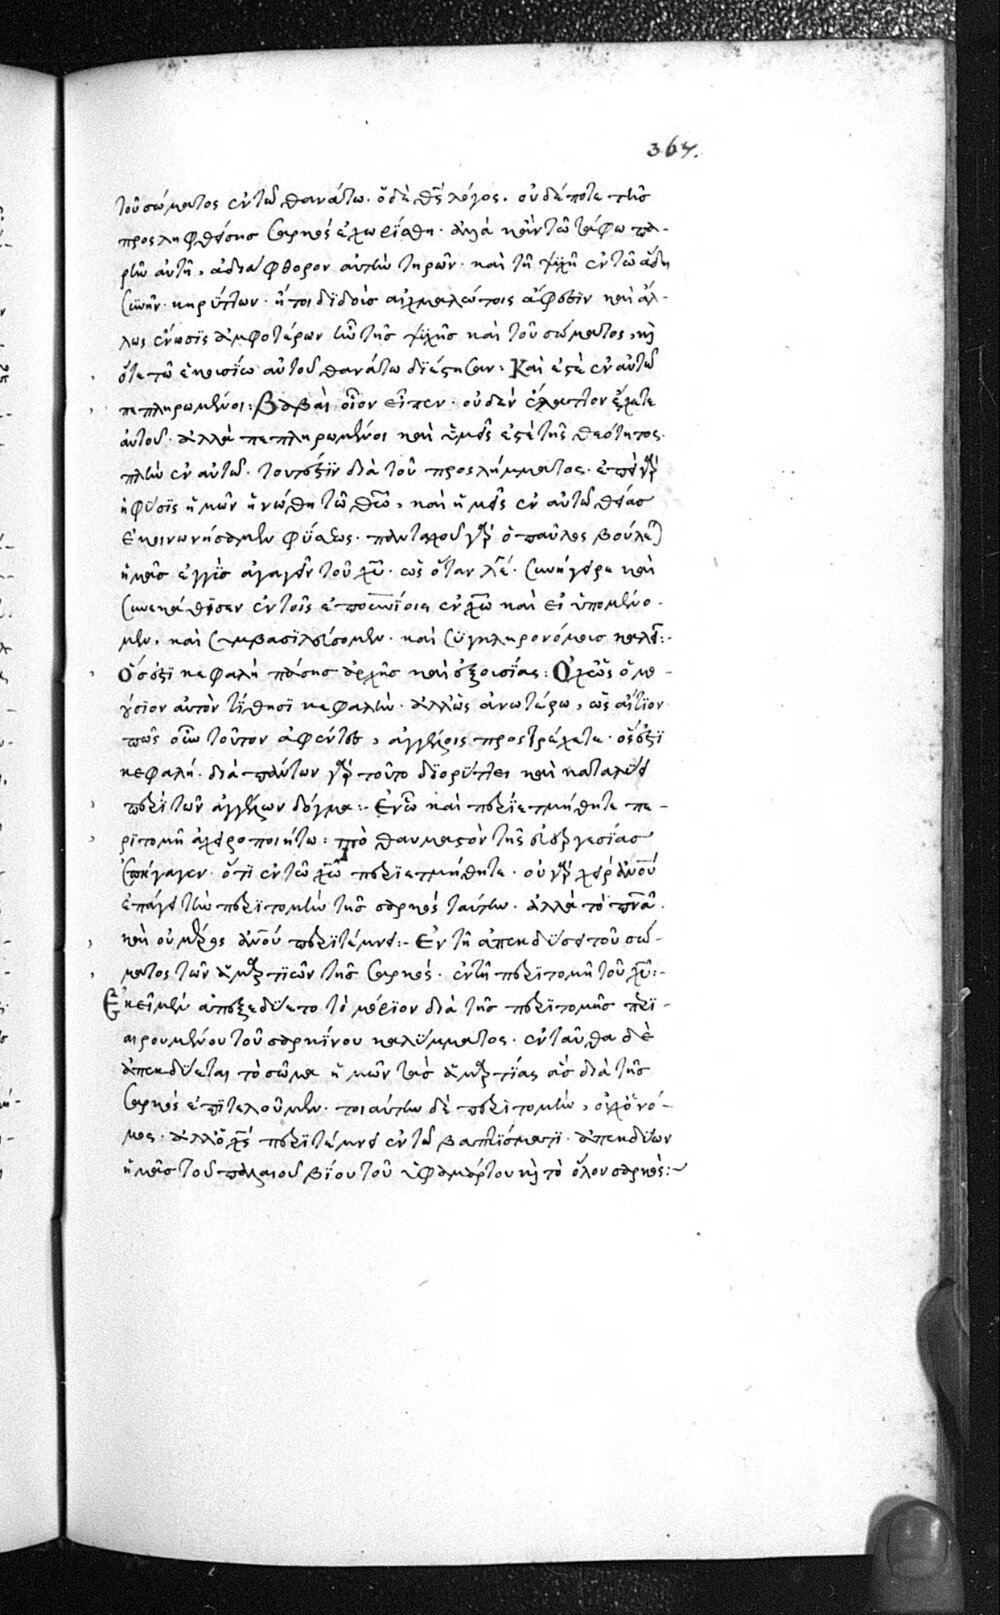 367.
τοῦ σώματος ἐν τῶ θανάτω. ὁ δὲ θς λόγος. οὐδέποτε τῆς
προσληφθείσης σαρκὸς ἐχωρίσθη. ἀλλὰ κἂν τῶ τάφω πα-
ρῆν αὐτῆ, ἀδιάφθορον αὐτὴν τηρῶν. καὶ τῆ ψυχῆ ἐν τῶ ἅδη
συνῆν. κηρύττων. ἤτοι διδοὺς αἰχμαλώτοις ἄφεσϊν καὶ ἄλ-
λως ἕνωσϊς ἀμφοτέρων ἦν τῆς ψυχῆς καὶ τοῦ σώματος, κὶ
ὅτε τῶ ἑκουσίω αὐτοῦ θανάτω διέστησαν: Καὶ ἐστὲ ἐν αὐτῶ
πεπληρωμένοι: Βαβαὶ οἷον εἶπεν. οὐδὲν ἔλαττον ἔχετε
αὐτοῦ. ἀλλὰ πεπληρωμένοι καὶ ὑμεῖς ἐστὲ τῆς θεότητος.
πλὴν ἐν αὐτῶ. τουτέστϊν διὰ τοῦ προσλήμματος. ἐπεὶ γὰρ
ἡ φύσϊς ἡμῶν ἡνώθη τῶ θεῶ, καὶ ἡμεῖς ἐν αὐτῶ θείας
ἐκοινωνήσαμεν φύσεως. πανταχοῦ γὰρ ὁ παῦλος βούλεται
ἡμᾶς ἐγγὺς ἀγαγεῖν τοῦ χυ. ὡς ὅταν λέγη. συνήγειρε καὶ
συνεκάθϊσεν ἐν τοῖς ἐπουνίοις ἐν χω καὶ εἰ ὑπομένο-
μεν, καὶ συμβασϊλεύσομεν. καὶ συγκληρονόμοις καλεῖ:-
Ὅς ἐστι κεφαλὴ πάσης ἀρχῆς καὶ ἐξουσίας: Οὐχ ὡς ὁμο-
ούσϊον αὐτὸν τίθησϊ κεφαλὴν. ἀλλ' ὡς ἀνωτέρω, ὡς αἴτϊον
πῶς οὖν τοῦτον ἀφέντες, ἀγγέλοις προστρέχετε. ὅς ἐστϊ
κεφαλή. διὰ πάντων γὰρ τοῦτο δϊορύττει καὶ καταλύει
τὸ περὶ τῶν ἀγγέλων δόγμα:- Ἐν ὧ καὶ περϊετμήθητε πε-
ρϊτομῆ ἀχειροποιήτω: Τὸ θαυμαστὸν τῆς εὐεργεσίας
ἐπήγαγεν. ὅτι ἐν τῶ χω περϊετμήθητε. οὐ γὰρ χεὶρ ἀνου
ἐπάγει τὴν περϊτομὴν τῆς σαρκὸς ταύτην. ἀλλὰ τὸ πνα.
καὶ οὐ μέρος ἀνου περιτέμνει:- Ἐν τῆ ἀπεκδύσει τοῦ σώ-
ματος τῶν ἁμαρτϊῶν τῆς σαρκὸς. ἐν τῆ περϊτομῆ τοῦ χυ:-
Ἐκεῖ μὲν ἀπεξεδύετο τὸ μόριον διὰ τῆς περϊτομῆς περϊ-
αιρουμένου τοῦ σαρκίνου καλύμματος. ἐνταῦθα δὲ
ἀπεκδύεται τὸ σῶμα ἡμῶν τὰς ἁμαρτίας ἃς διὰ τῆς
σαρκὸς ἐπϊτελοῦμεν. τοιαύτην δὲ περϊτομὴν, οὐχ ὁ νό-
μος. ἀλλ' ὁ χς περϊτέμνει ἐν τῶ βαπτίσματϊ. ἀπεκδύων
ἡμᾶς τοῦ παλαιοῦ βίου τοῦ ἐφαμάρτου κὶ τὸ ὅλον σαρκός:~